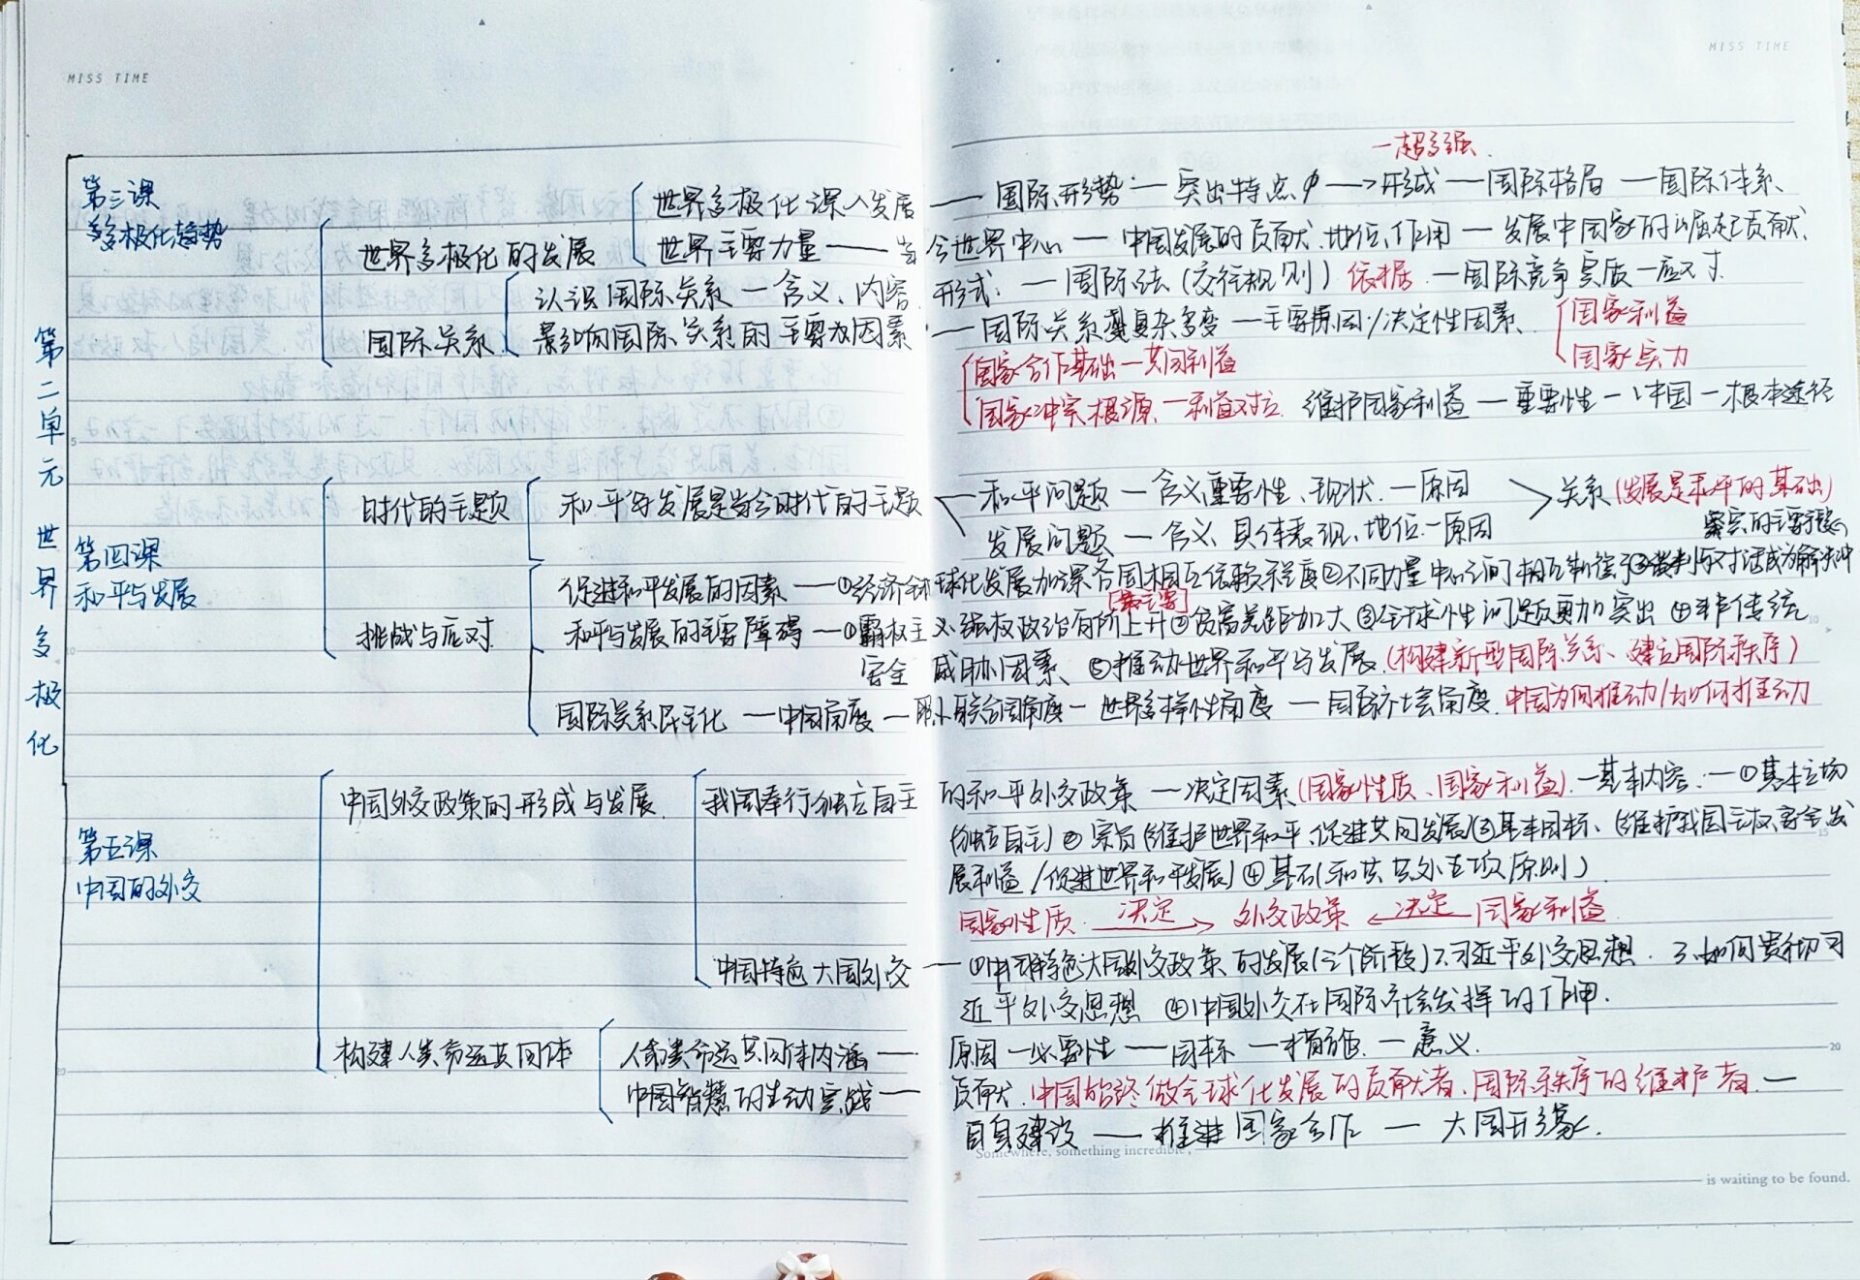 MISS TIME
MISS TIME
第二单元 世界多极化
第三课
多极化趋势
一超多强
世界多极化的发展
世界多极化深入发展 — 国际形势 — 突出特点 → 形成 — 国际格局 — 国际体系
世界主要力量 — 当今世界中心 — 中国发展的贡献、地位、作用 — 发展中国家的崛起贡献、
国际关系
认识国际关系 — 含义、内容、形式: — 国际法（交往规则）依据 — 国际竞争实质 — 应对
影响国际关系的主要因素 — 国际关系复杂多变 — 主要原因/决定性因素、
国家利益
国家实力
国家合作基础 — 共同利益
国家冲突根源 — 利益对立 维护国家利益 — 重要性 — 中国 — 根本途径
第四课
和平与发展
时代的主题
和平与发展是当今时代的主题
和平问题 — 含义、重要性、现状 — 原因
发展问题 — 含义、具体表现、地位 — 原因
关系（发展是和平的基础）
挑战与应对
促进和平发展的因素 — ①经济全球化发展加深各国相互依赖程度②不同力量中心之间相互制衡③谈判与对话成为解决冲
突的主要手段
和平与发展的主要障碍 — ①霸权主义强权政治有所上升②贫富差距加大③全球性问题更加突出④非传统
安全威胁因素、⑤推动世界和平与发展（构建新型国际关系、建立国际秩序）
国际关系民主化 — 中国角度 — 联合国角度 — 世界多样性角度 — 国际社会角度 中国为何推动/如何推动
第五课
中国的外交
中国外交政策的形成与发展
我国奉行独立自主的和平外交政策 — 决定因素（国家性质、国家利益）— 基本内容: — ①基本立场
（独立自主）②宗旨（维护世界和平、促进共同发展）③基本目标、（维护我国主权、安全、发
展利益/促进世界和平发展）④基石（和共处外五项原则）
国家性质 决定→ 外交政策 ←决定 国家利益
中国特色大国外交 — ①中国特色大国外交政策的发展（三个阶段）2.习近平外交思想. 3.如何贯彻习
近平外交思想 ④中国外交在国际社会发挥的作用.
构建人类命运共同体
人类命运共同体内涵 — 原因 — 必要性 — 目标 — 措施 — 意义.
中国智慧的生动实践 — 贡献 中国始终做全球化发展的贡献者、国际秩序的维护者 —
自身建设 — 推进国家合作 — 大国形象.
Somewhere, something incredible,
is waiting to be found.